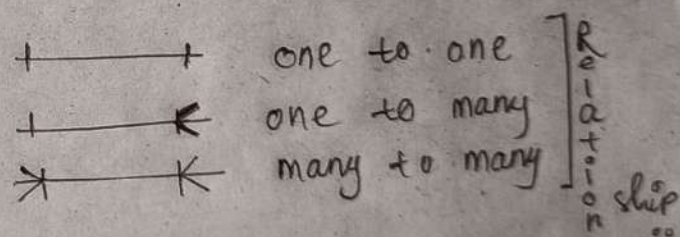 one to one
one to many
many to many
Relation
ship